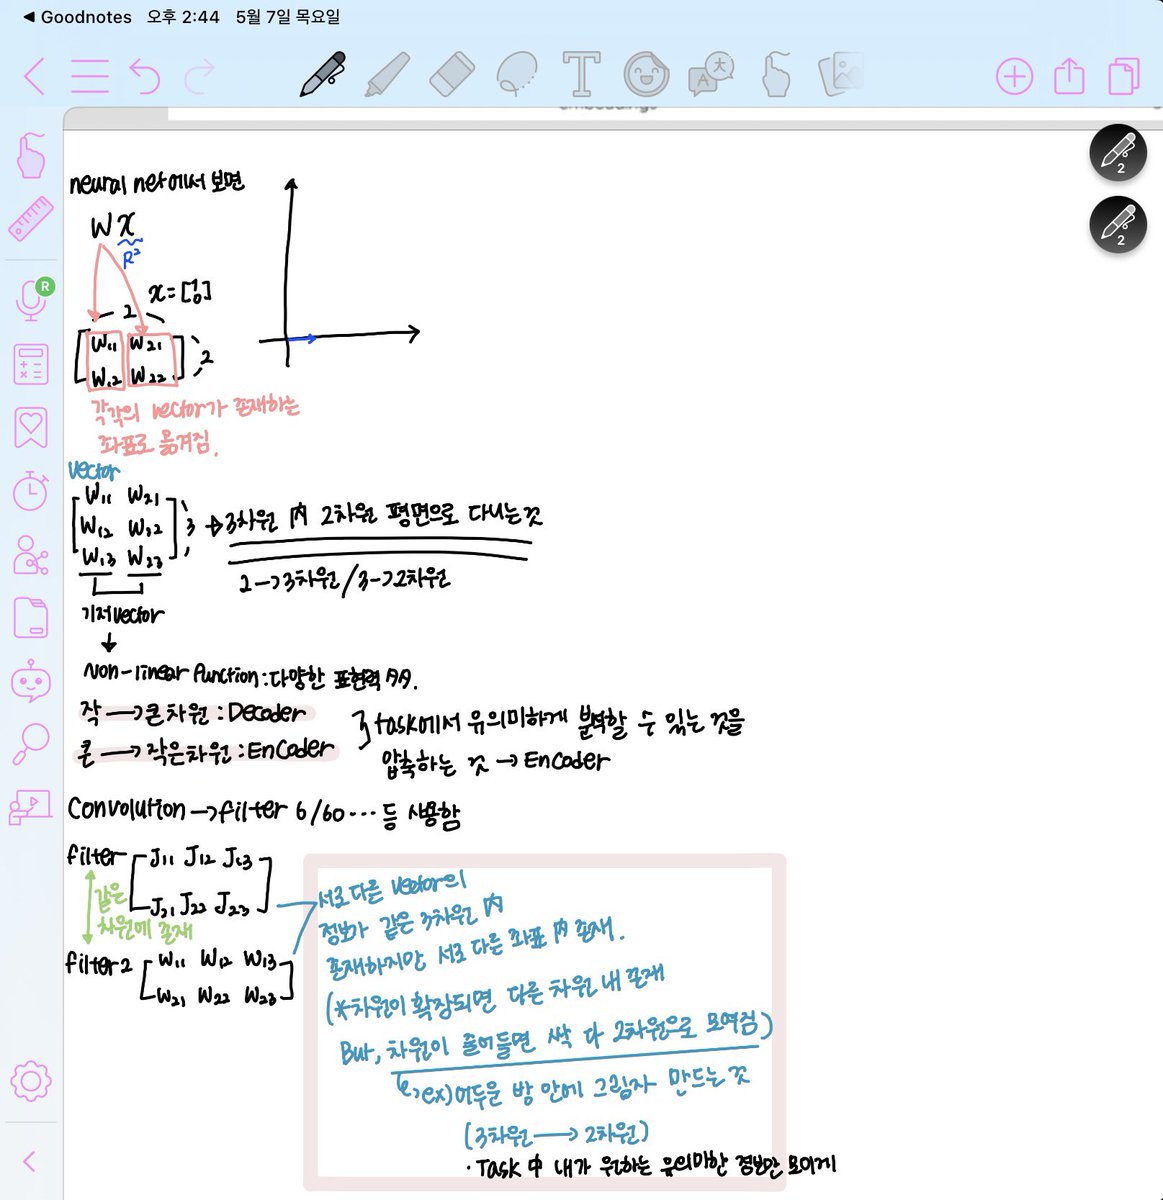 ◀ Goodnotes 오후 2:44 5월 7일 목요일
embeddings
2
2
R
neural net에서 보면
W x
R²
x = [1 0]
2
W11 W21
W12 W22
2
각각의 vector가 존재하는
좌표로 옮겨짐.
vector
W11 W21
W12 W22
W13 W23
3 → 3차원 內 2차원 평면으로 다니는 것
2 → 3차원 / 3 -> 2차원
기저 vector
↓
Non-linear function : 다양한 표현력 多多.
작 → 큰 차원 : Decoder
큰 → 작은 차원 : Encoder
task에서 유의미하게 분류할 수 있는 것을
압축하는 것 → Encoder
Convolution → filter 6/60 ... 등 사용함
filter J11 J12 J13
J21 J22 J23
같은
차원에 존재
filter2 W11 W12 W13
W21 W22 W23
서로 다른 vector의
정보가 같은 3차원 內
존재하지만 서로 다른 좌표 內 존재.
(*차원이 확장되면 다른 차원 내 존재
But, 차원이 줄어들면 싹 다 2차원으로 모여짐)
↳ ex) 어두운 방 안에 그림자 만드는 것
(3차원 → 2차원)
· Task 中 내가 원하는 유의미한 정보만 모이게